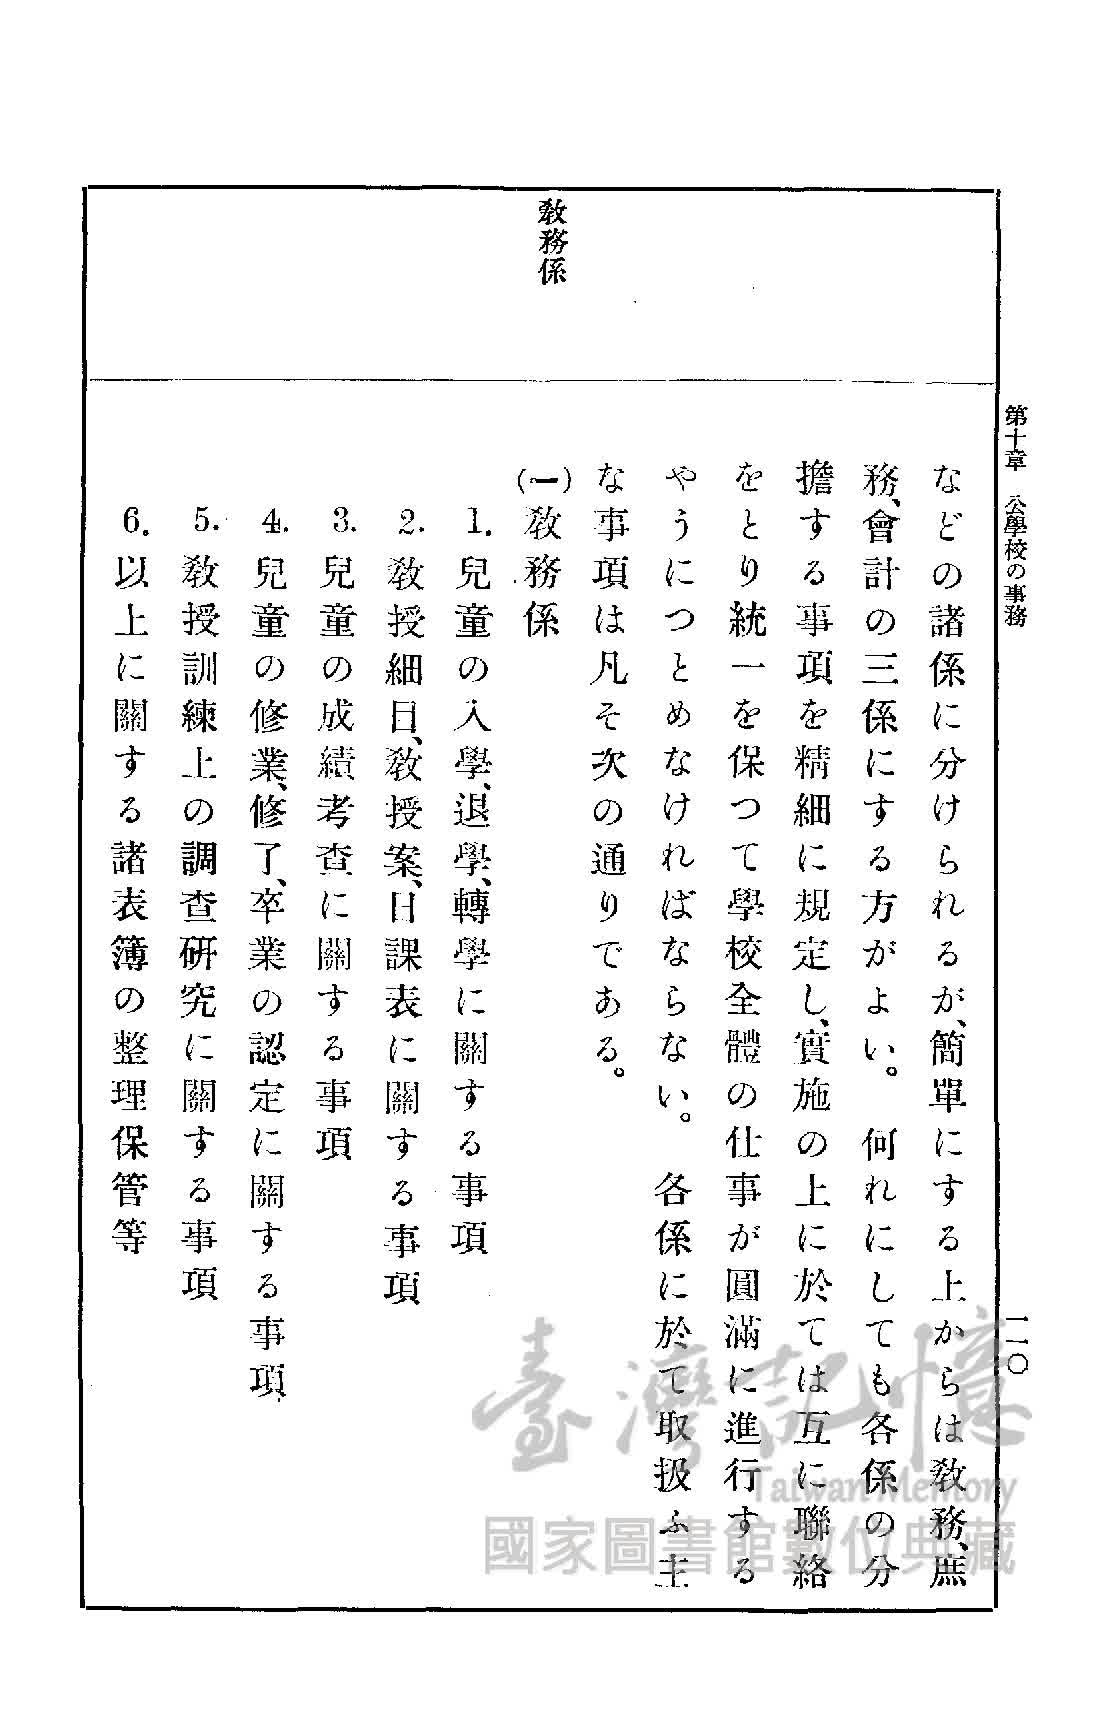 第十章　公學校の事務
一一〇
などの諸係に分けられるが、簡單にする上からは敎務、庶
務、會計の三係にする方がよい。　何れにしても各係の分
擔する事項を精細に規定し、實施の上に於ては互に聯絡
をとり統一を保つて學校全體の仕事が圓滿に進行する
やうにつとめなければならない。　各係に於て取扱ふ主
な事項は凡そ次の通りである。
敎務係
(一)敎務係
1. 兒童の入學、退學、轉學に關する事項
2. 敎授細目、敎授案、日課表に關する事項
3. 兒童の成績考査に關する事項
4. 兒童の修業、修了、卒業の認定に關する事項
5. 敎授訓練上の調査硏究に關する事項
6. 以上に關する諸表簿の整理保管等
臺灣記憶
Taiwan Memory
國家圖書館數位典藏